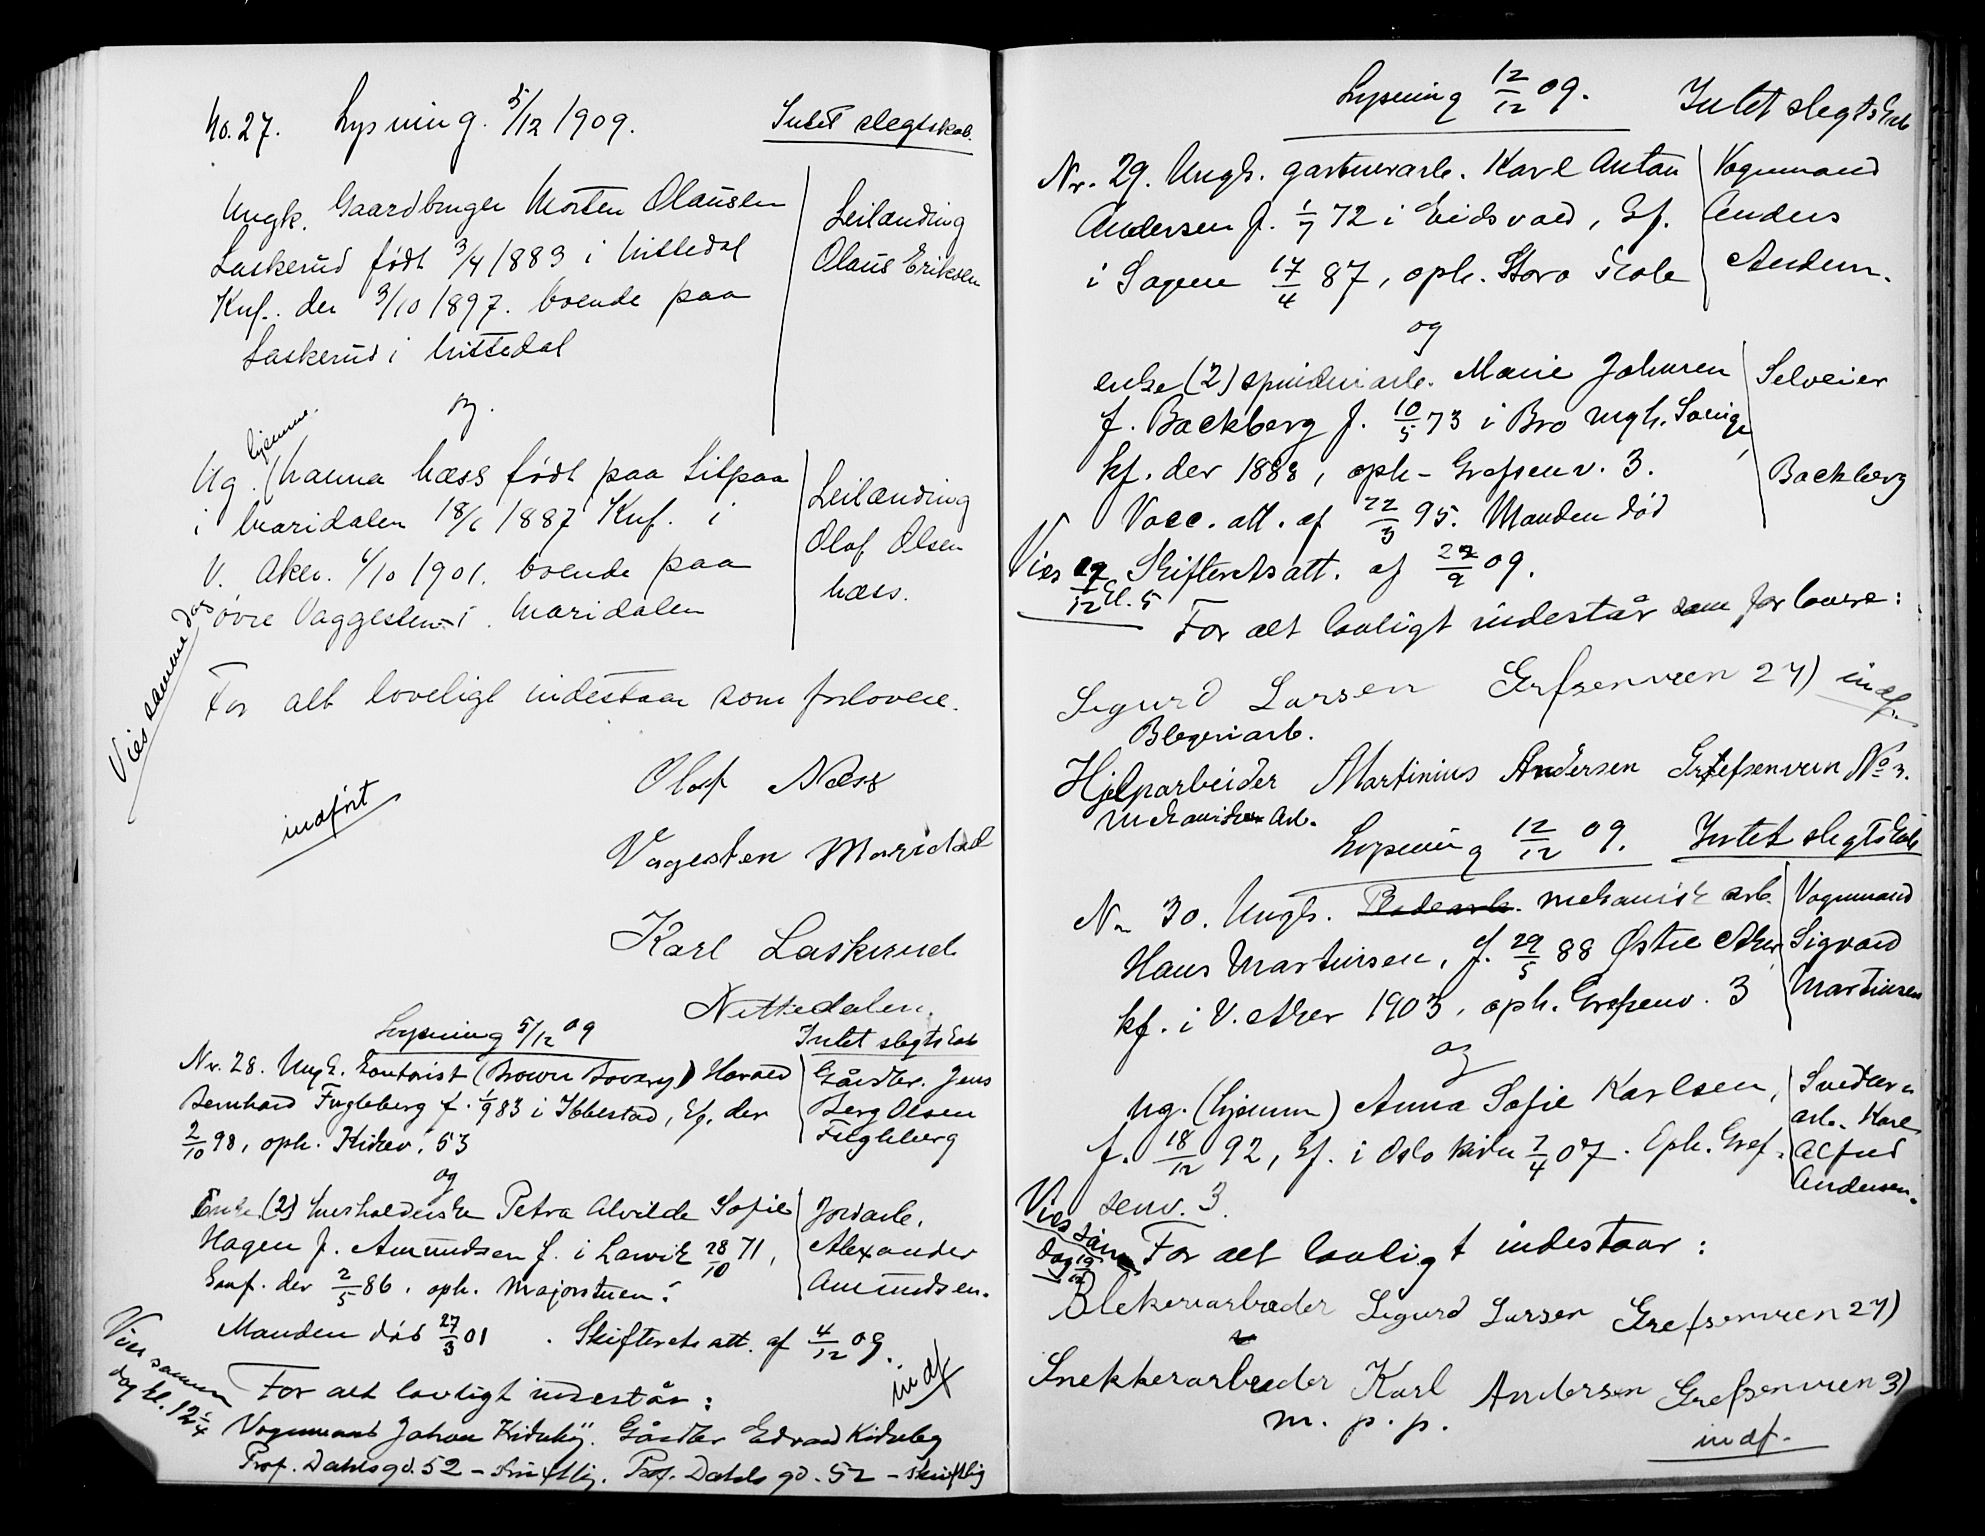 No. 27. Lysning. 5/12 1909. Intet slegtskab.
Ungk. Gaardbruger Morten Olausen
Laskerud født 3/4 1883 i Nittedal
Knf. den 3/10 1897. boende paa
Laskerud i Nittedal
Leilænding
Olaus Eriksen
og.
hjemme.
Ug. (Hanna Næss født paa Lilpaa
i Maridalen 18/6 1887 Knf. i
V. Aker. 6/10 1901. boende paa
øvre Vaggesten i Maridalen
Leilænding
Olaf Olsen
Næss.
Vies samme dag
For alt loveligt indestaar som forlovere.
Olaf Næss
indført
Vagesten Maridal
Karl Laskerud
Nittedalen.
Lysning 5/12 09 Intet slegtskab
Nr. 28. Ungk. kontorist (Brown Bovery) Harald
Bernhard Fugleberg f. 1/9 83 i Ibbestad, kf. der
2/10 98, oph. Kirkev. 53
Gårdbr. Jens
Berg Olsen
Fugleberg
og
Enke (2) husholderske Petra Alvilde Sofie
Hagen f. Amundsen f. i Larvik 28/10 71,
konf. der 2/5 86. oph. Majorstuen.
Jordarb.
Alexander
Amundsen.
Manden død 27/3 01. Skifterets att. af 4/12 09.
Vies samme
dag kl. 12 1/4
For alt lovligt indestår:
indf
Vognmand Johan Gårdbr Edvard
Prof. Dahls gd. 52 – skriftlig. Prof. Dahls gd. 52 – skriftlig
Lysning 12/12 09. Intet slegtskab
Nr. 29. Ungk. gartnerarb. Karl Anton
Andersen f. 1/7 72 i Eidsvold, kf.
i Sagene 17/4 87, oph. Storo
Vognmand
Anders
Andersn.
og
enke (2) spinderiarb. Marie Johnsen
f. Backberg f. 10/5 73 i Bro Sverige,
kf. der 1888, oph – Grefsenv. 3.
Selveier
Backberg
Vacc. att. af 22/3 95. Manden død
Vies
12 kl. 5
Skifterets att. af 22/9 09.
For alt lovligt indestår som forlovere:
Sigurd Larsen Grefsenveien 27) indf.
Blegeriarb.
Hjelparbeider Martinius Andersen Grefsenvein No 3.
mekanisk Arb.
Lysning 12/12 09. Intet slegtskab
Nr 30. Ungk. mekanisk arb.
Hans Martinsen, f. 29/5 88 Østre Aker
kf. i V. Aker 1903, oph. Grefsenv. 3
Vognmand
Sigvard
Martinsen
og
Ug. (hjemme) Anna Sofie Karlsen,
f. 18/12 92, kf. i Oslo kirke 7/4 07. Oph. Gref-
senv. 3.
Snedker-
arb. Karl
Alfred
Andersen.
Vies samme
dag 19/12
For alt lovligt indestaar:
Blekeriarbeder Sigurd Larsen Grefsenveien 27)
Snekkerarbeder Karl Andersen Grefsenveien 3)
m. p. p.
indf.